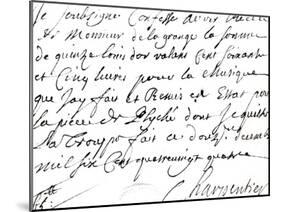 Je soubsigne Confesse avoir Receu
de Monsieur de la grange la somme
de quinze louis d'or valant Cent soixante
et Cinq livres pour la Musique
que J'ay fait et Remis en Estat pour
la piece de Psyché dont Je quitte
la Trouppe fait ce decembre
mil six Cent quatrevingt quatre
Charpentier